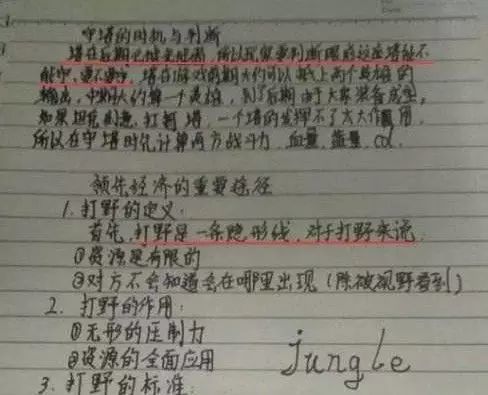 守塔的时机与判断
塔在后期也挺脆弱，所以玩家要判断眼前这座塔能不
能守，要不要守，塔在游戏前期大约可以抵上两个英雄的
输出，中期大约算一个英雄，到了后期由于大家装备成型，
如果坦克刻意打前塔，一个塔的发挥不了太大作用
所以在守塔时先计算两方战斗力，血量，蓝量，cd.
领先经济的重要途径
1. 打野的定义：
首先，打野是一条隐形线，对于打野来说
①资源是有限的
②对方不会知道会在哪里出现（除被视野看到）
2. 打野的作用：
①无形的压制力
②资源的全面应用
jungle
3. 打野的标准：